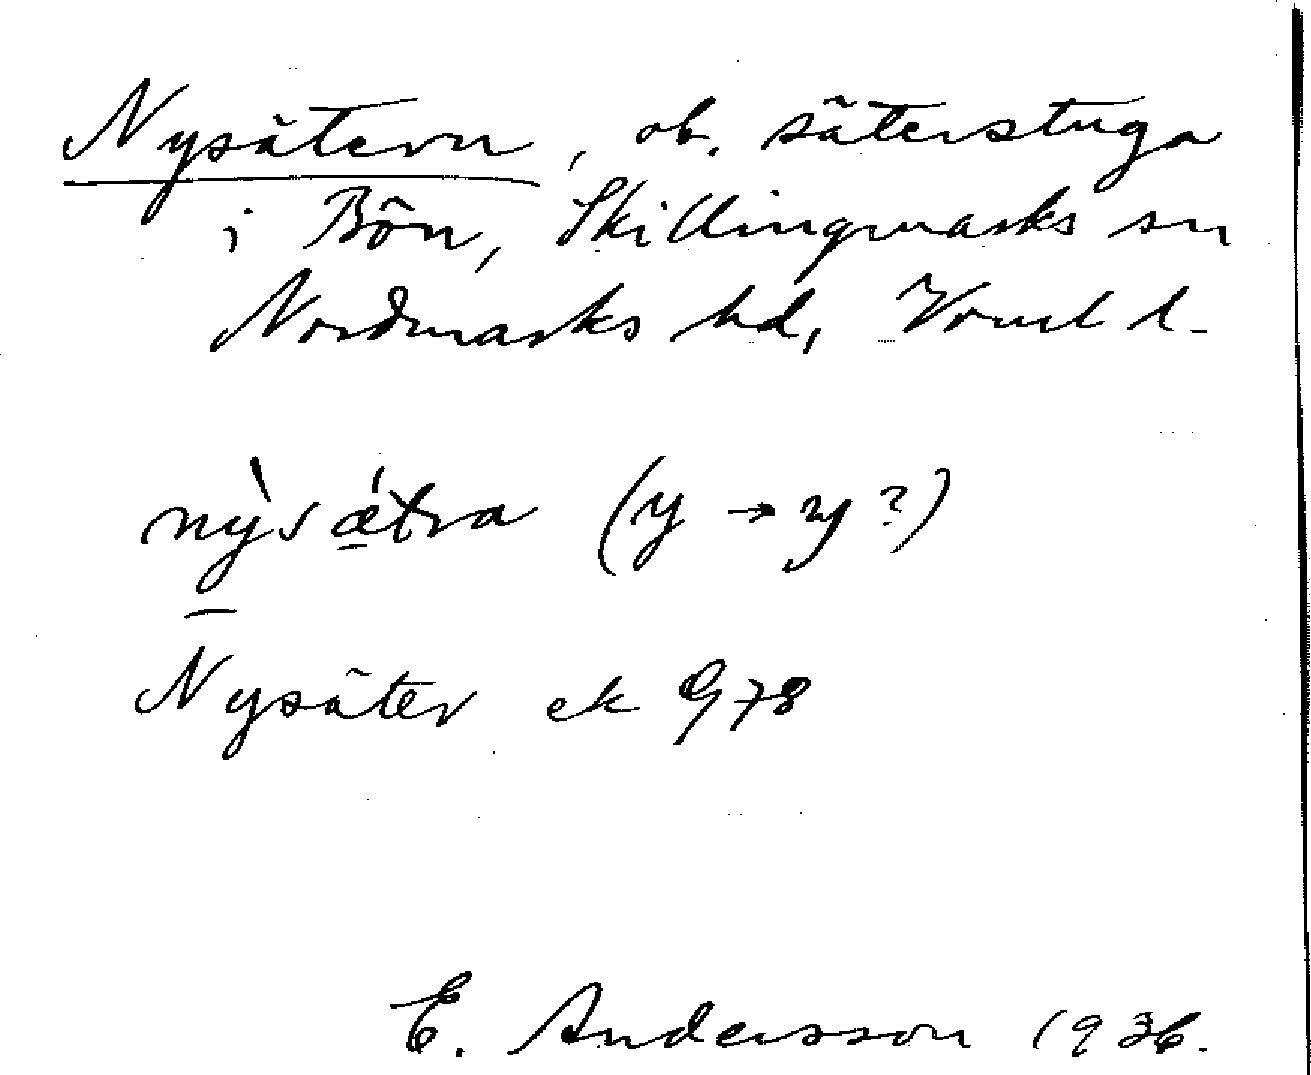 Nysätern, ob. säterstuga
i Bön, Skillingmarks sn
Nordmarks hd, Värml l.
nỳsǽtra (y → y?)
Nysäter ek G 78
E. Andersson 1936.